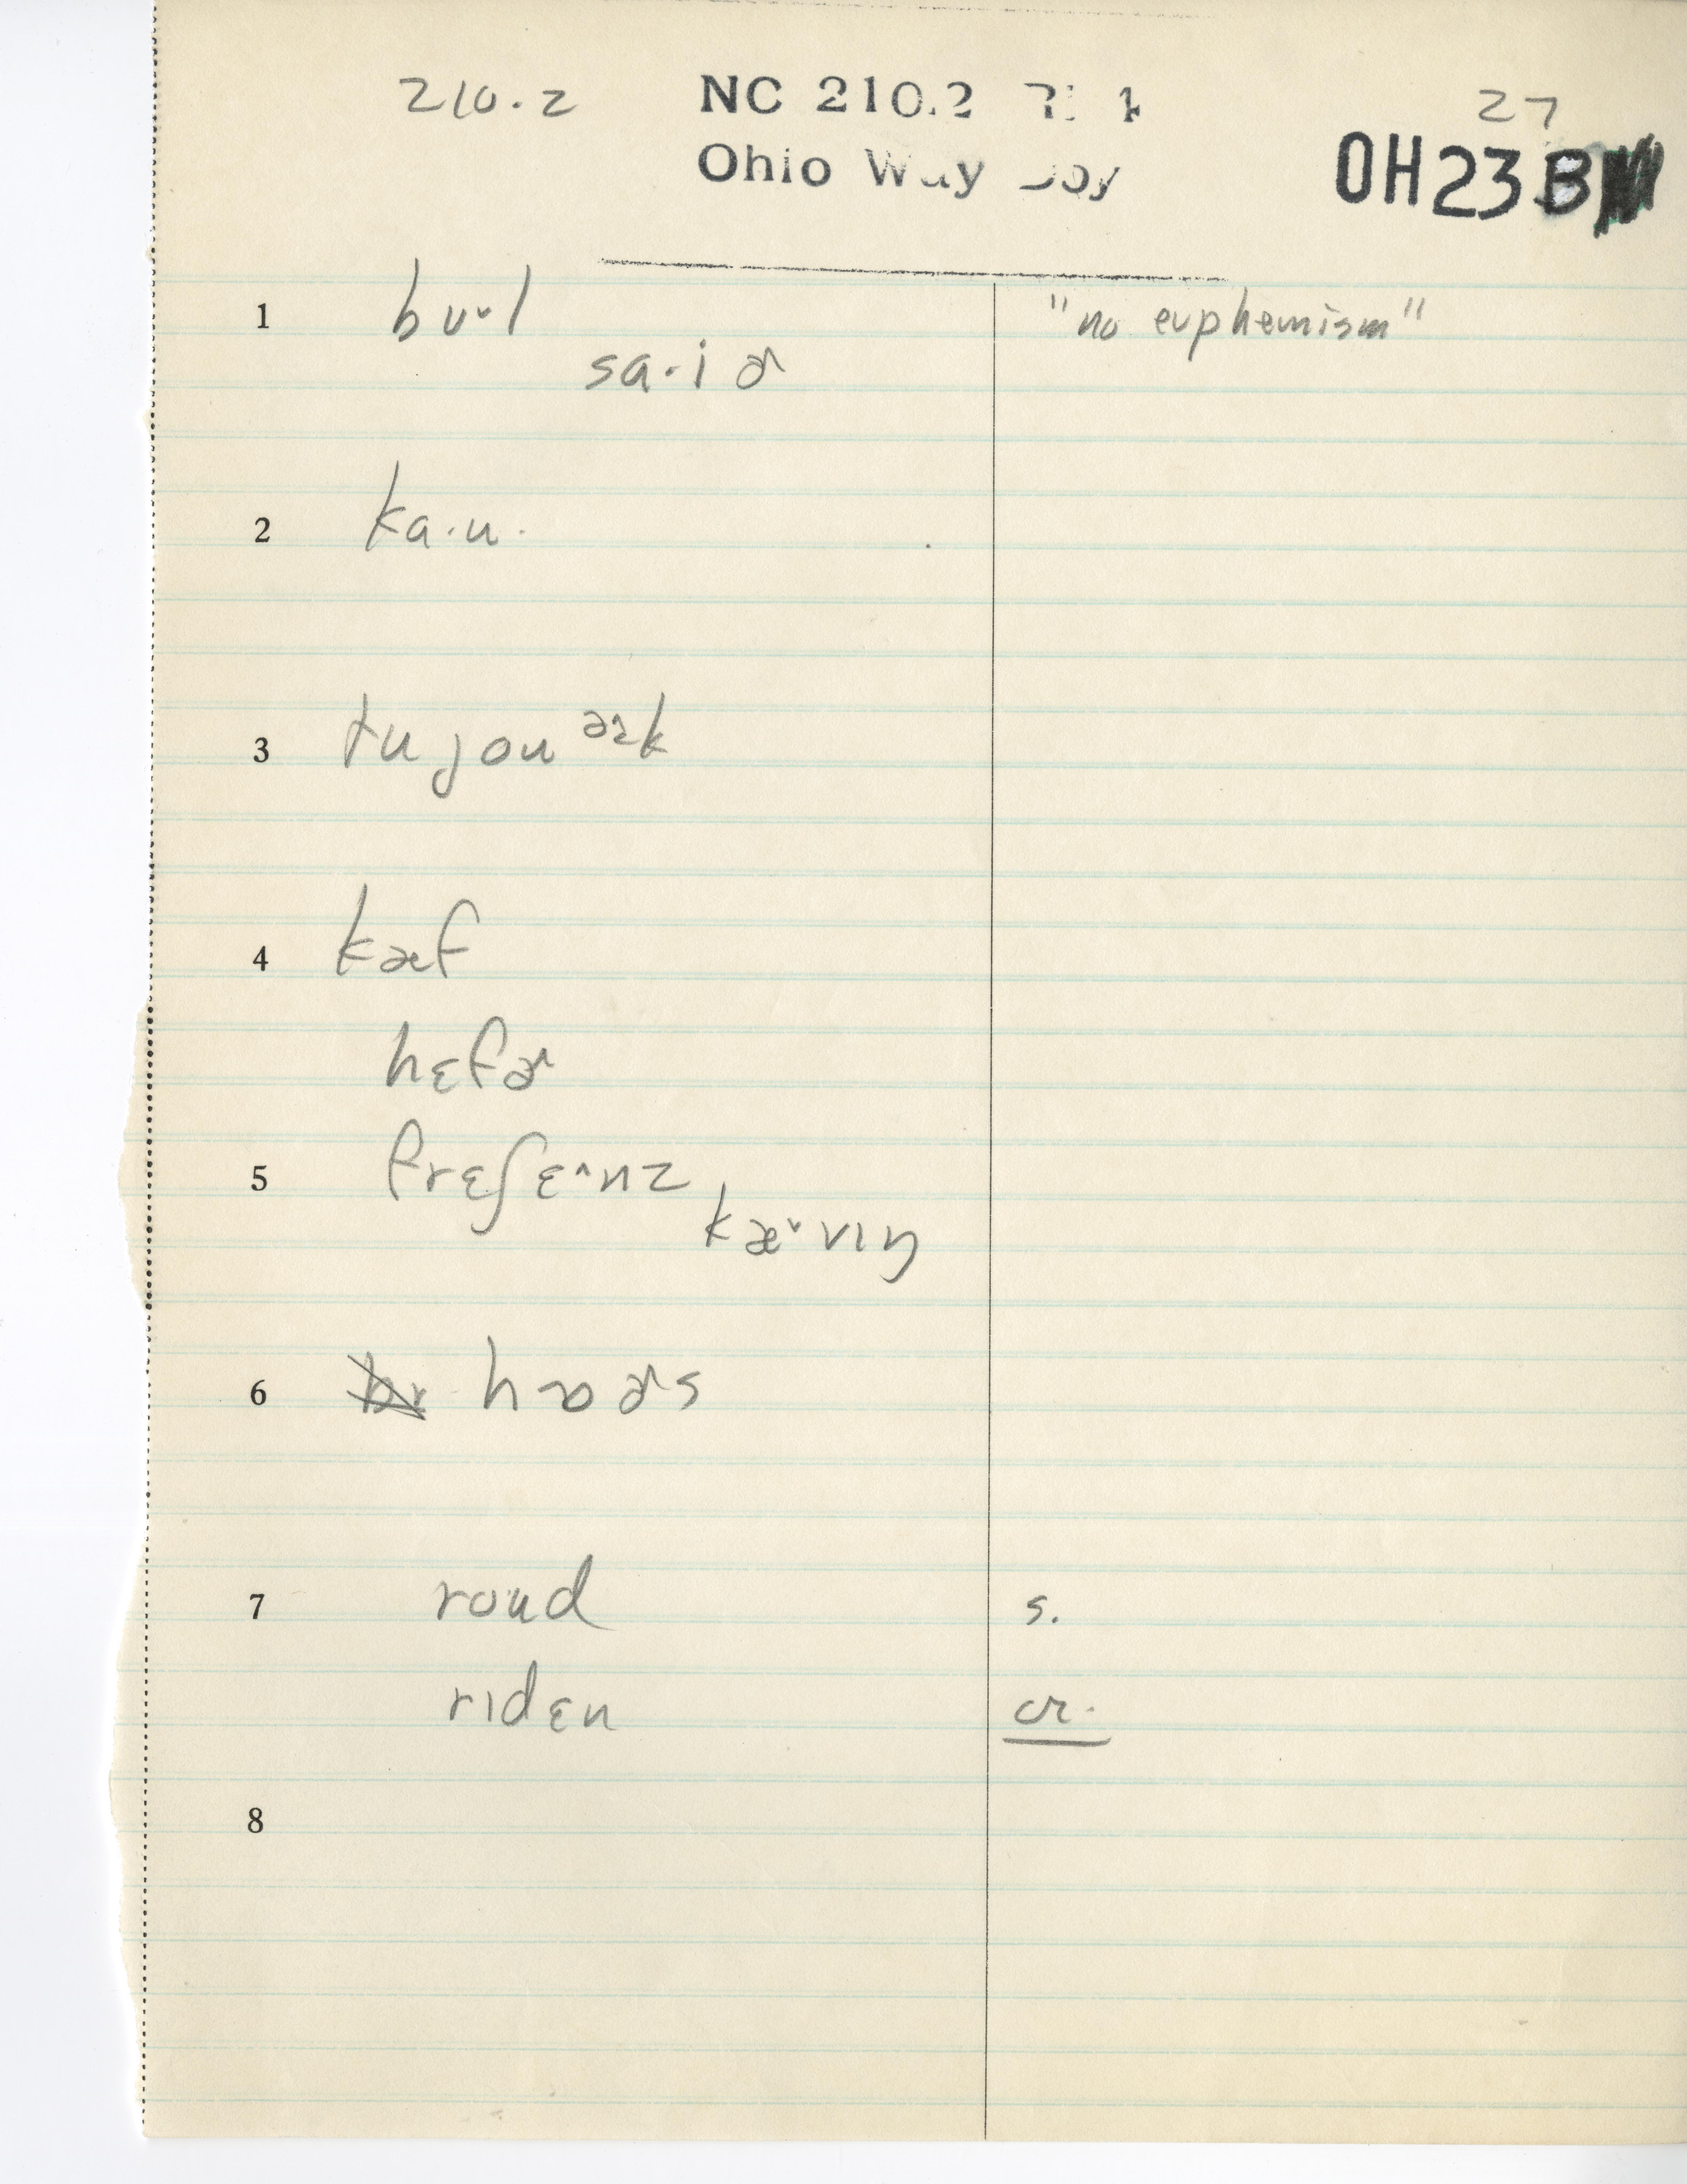 210.2 NC 210.2 27
Ohio Way OH23B
1 bʊ˅l "no euphemism"
sa·iɚ
2 ka·u·
3 tu jou ɚk
4 kæf
hɛfɚ
5 frɛʃɛ^nz
kæ˅vɪŋ
6 hɔɚs
7 roud s.
rɪdɛn cr.
8